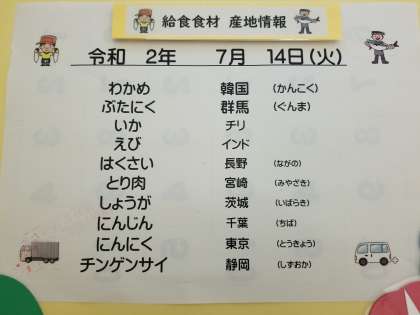 給食食材 産地情報
令和 2年 7月 14日(火)
わかめ 韓国 (かんこく)
ぶたにく 群馬 (ぐんま)
いか チリ
えび インド
はくさい 長野 (ながの)
とり肉 宮崎 (みやざき)
しょうが 茨城 (いばらき)
にんじん 千葉 (ちば)
にんにく 東京 (とうきょう)
チンゲンサイ 静岡 (しずおか)